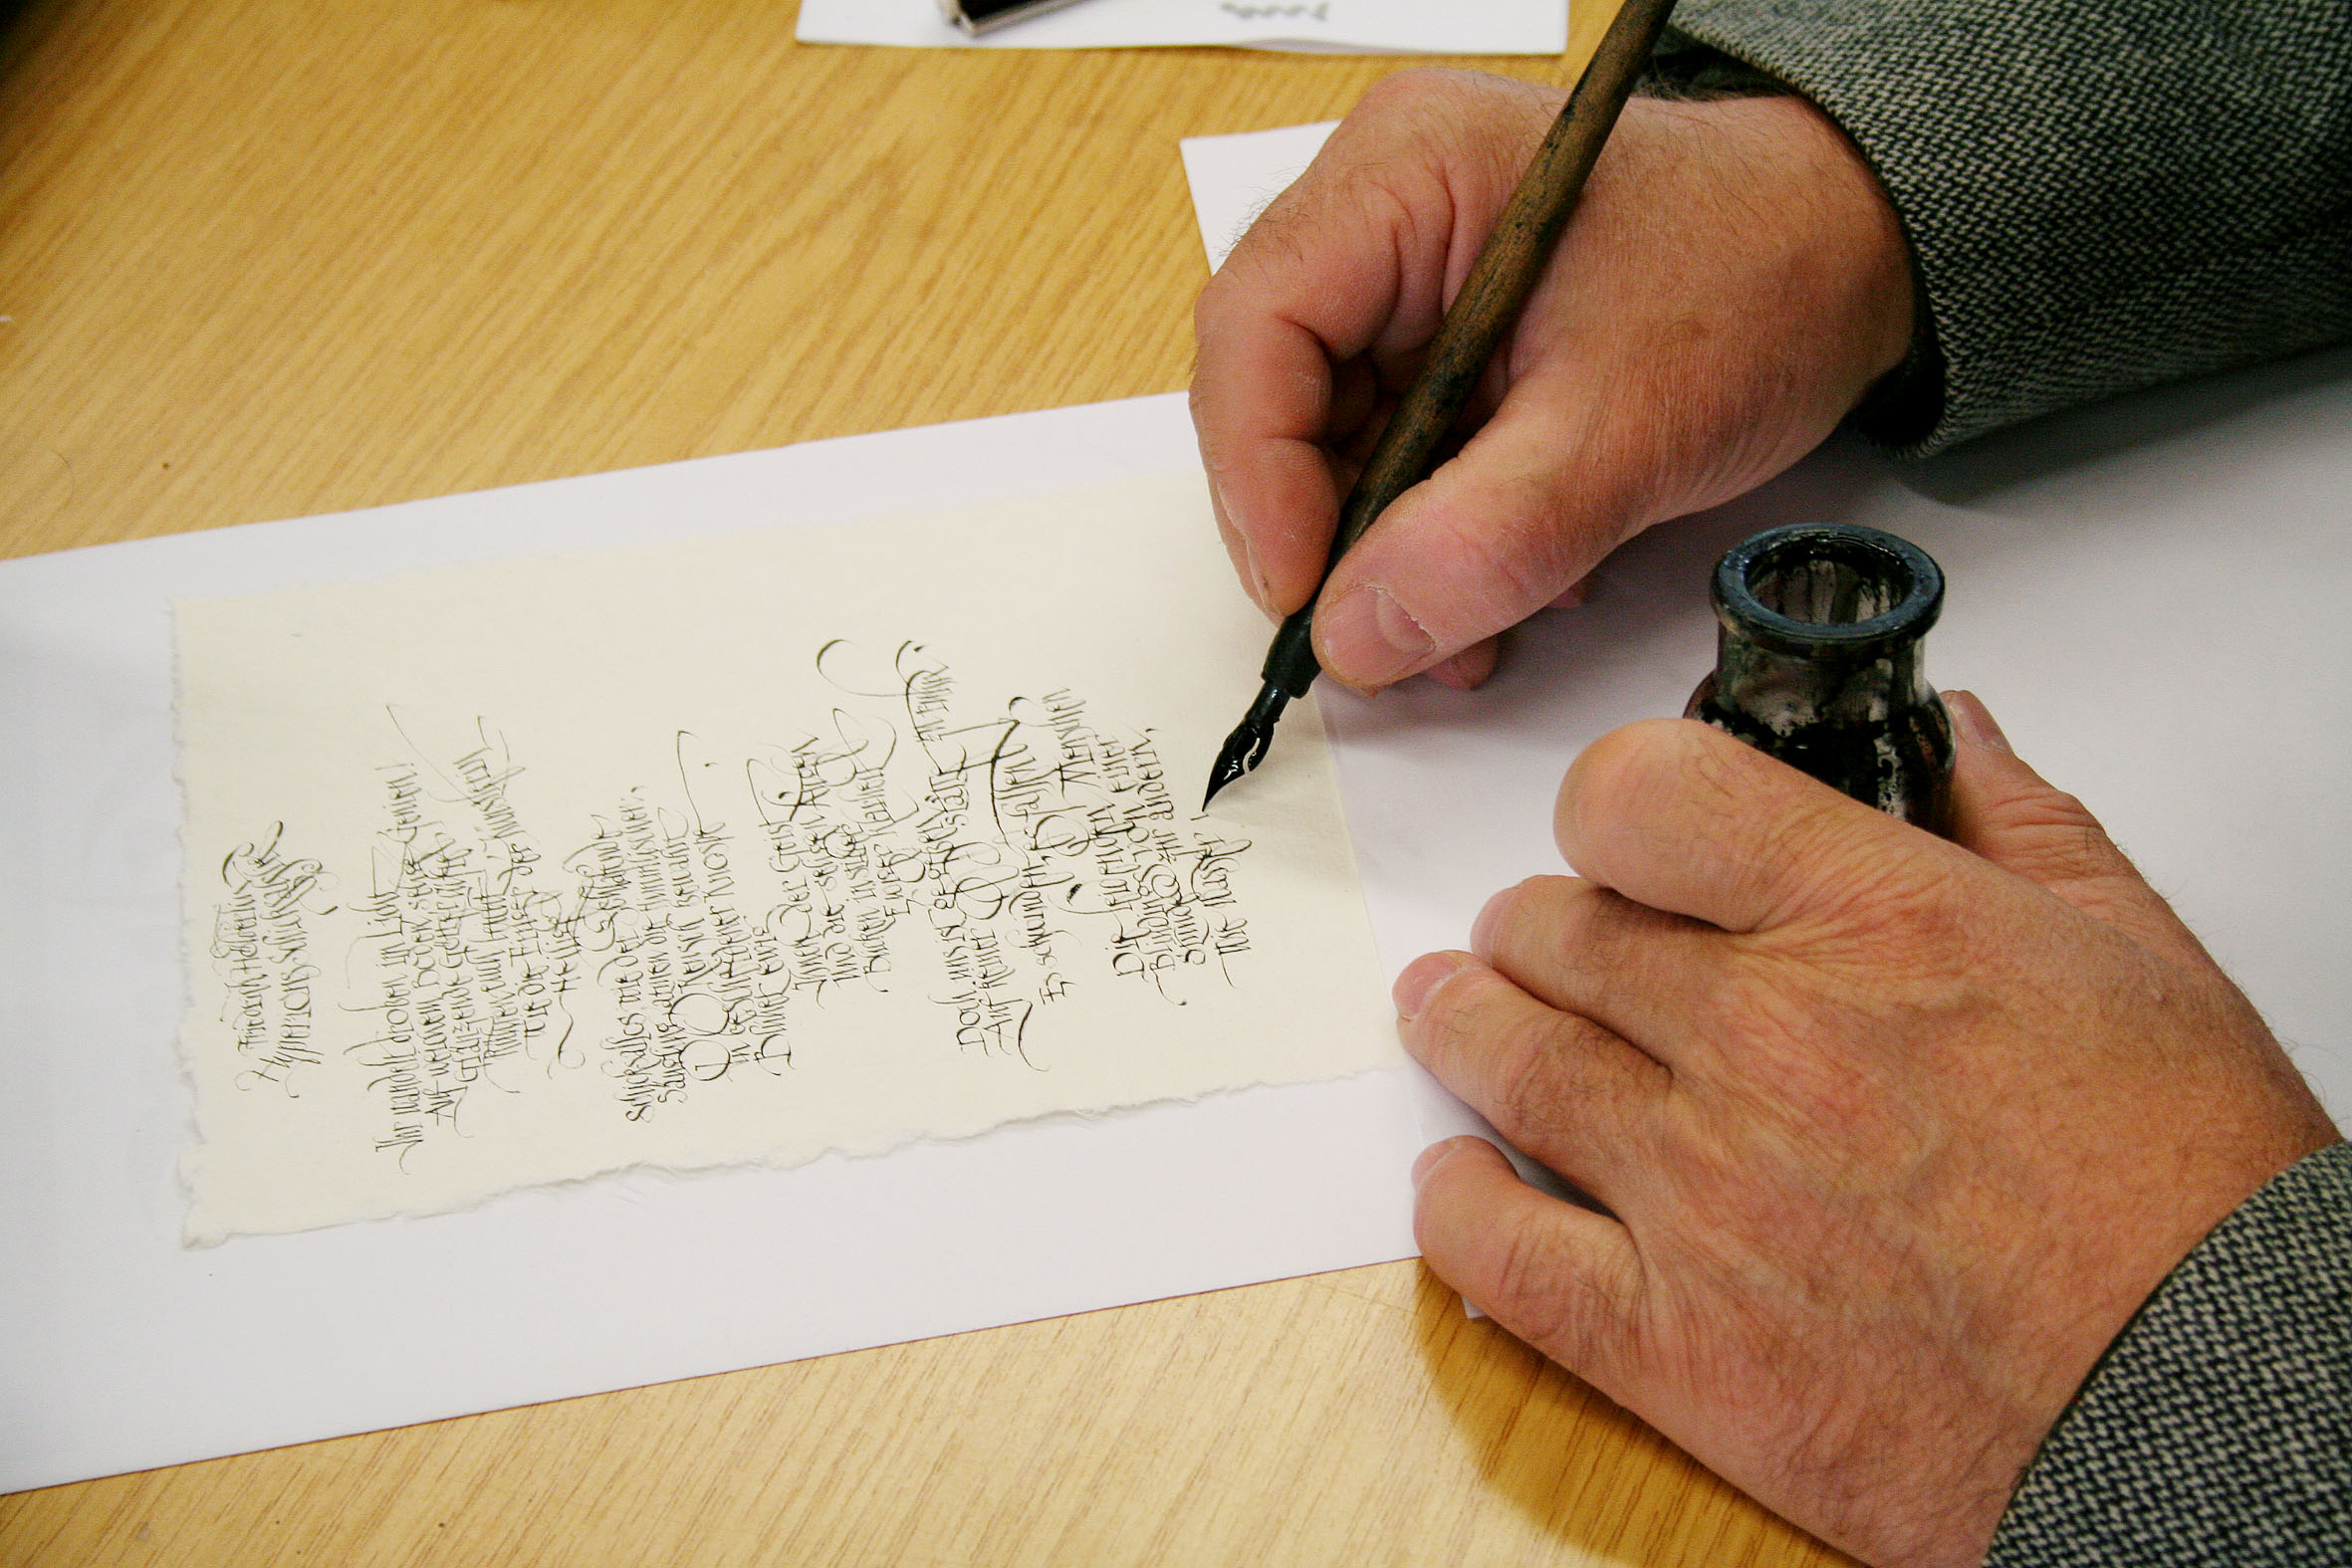 Friedrich Hölderlin
Hyperions Schicksalslied
Ihr wandelt droben im Licht
Auf weichem Boden selige Genien!
Glänzende Götterlüfte
Rühren euch leicht
Wie die Finger der Künstlerin
Heilige
Schicksallos wie der Schlafende
Säugling atmen die Himmlischen;
Keusch bewahrt
in bescheidener Knospe
Blühet ewig
Ihnen der Geist
Und die seligen Augen
Blicken in stiller
Ewiger Klarheit
Doch uns ist gegeben
Auf keiner Stätte zu ruhn.
Es schwinden, es fallen
Die leidenden Menschen
Blindlings von einer
Stunde zur andern,
Wie Wasser